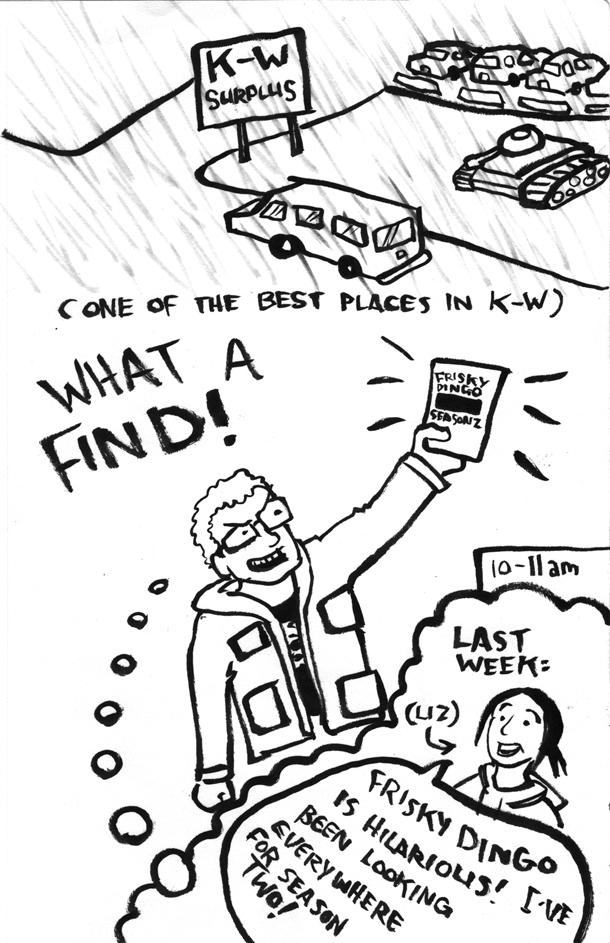 K-W
SURPLUS
(ONE OF THE BEST PLACES IN K-W)
WHAT A
FIND!
FRISKY
DINGO
SEASON 2
10-11am
LAST
WEEK:
(LIZ)
FRISKY DINGO
IS HILARIOUS! I'VE
BEEN LOOKING
EVERYWHERE
FOR SEASON
TWO!